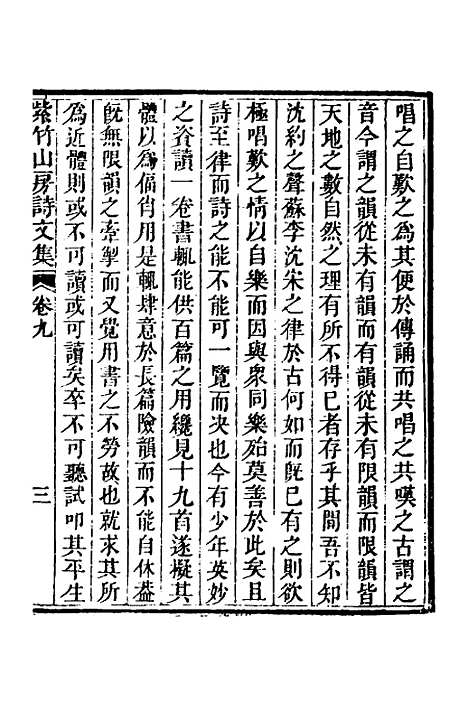 唱之自歎之為其便於傳誦而共唱之共嘆之古謂之
音今謂之韻從未有韻而有韻從未有限韻而限韻皆
天地之數自然之理有所不得已者存乎其間吾不知
沈約之聲蘇李沈宋之律於古何如而旣已有之則欲
極唱歎之情以自樂而因與衆同樂殆莫善於此矣且
詩至律而詩之能不能可一覽而决也今有少年英妙
之資讀一卷書輒能供百篇之用纔見十九首遂擬其
體以為偪肖用是輒肆意於長篇險韻而不能自休葢
旣無限韻之牽掣而又覺用書之不勞故也就求其所
為近體則或不可讀或可讀矣卒不可聽試叩其平生
紫竹山房詩文集 卷九 三